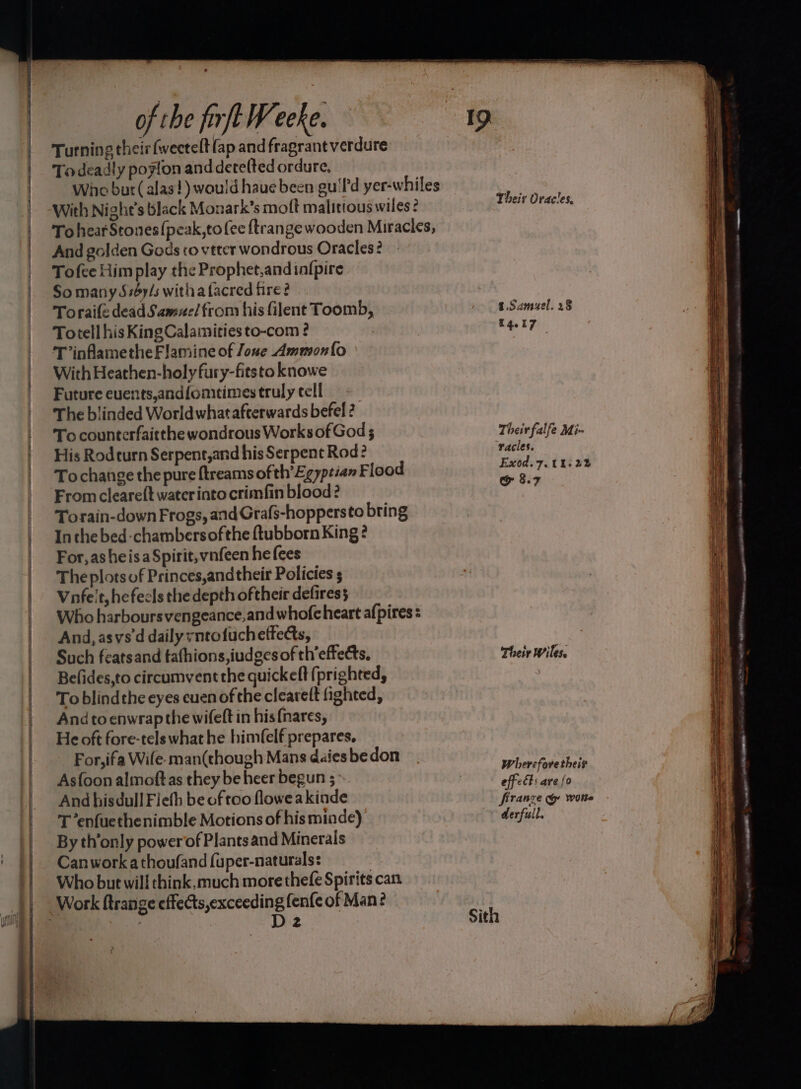 of the firſt Weeke. 19
Turning their ſweeteſt ſap and fragrant verdure
To deadly poyſon and deteſted ordure,
Who but (alas!) would haue been guil'd yer-whiles
With Night's black Monark's moſt malitious wiles?
Their Oracles.
To hear Stones ſpeak, to ſee ſtrange wooden Miracles,
And golden Gods to vtter wondrous Oracles?
To ſee Him play the Prophet, and inſpire
So many Sibyls with a ſacred fire?
To raiſe dead Samuel from his ſilent Toomb,
1.Samuel. 28
To tell his King Calamities to-com?
14.17
T'inflame the Flamine of Ioue Ammon ſo
With Heathen-holy fury-fits to knowe
Future euents, and ſomtimes truly tell
The blinded World what afterwards befel?
To counterfait the wondrous Works of God;
Their falſe Mi-
His Rod turn Serpent, and his Serpent Rod?
racles.
To change the pure ſtreams of th'Egyptian Flood
Exod. 7. 11. 22
From cleareſt water into crimſin blood?
& 8.7
To rain-down Frogs, and Graſs-hoppers to bring
In the bed-chambers of the ſtubborn King?
For, as he is a Spirit, vnſeen he ſees
The plots of Princes, and their Policies;
Vnfelt, he feels the depth of their deſires;
Who harbours vengeance, and whoſe heart aſpires:
And, as vs'd daily vnto ſuch effects,
Such feats and faſhions, iudges of th'effects.
Their Wiles.
Beſides, to circumvent the quickeſt ſprighted,
To blind the eyes euen of the cleareſt ſighted,
And to enwrap the wiſeſt in his ſnares,
He oft fore-tels what he himſelf prepares.
For, if a Wiſe-man (though Mans daies be don
Wherefore their
As ſoon almoſt as they be heer begun;
effects are ſo
And his dull Fleſh be of too ſlowe a kinde
ſtrange & won-
T'enſue the nimble Motions of his minde)
derfull.
By th'only power of Plants and Minerals
Can work a thouſand ſuper-naturals:
Who but will think, much more theſe Spirits can
Work ſtrange effects, exceeding ſenſe of Man?
D 2 Sith